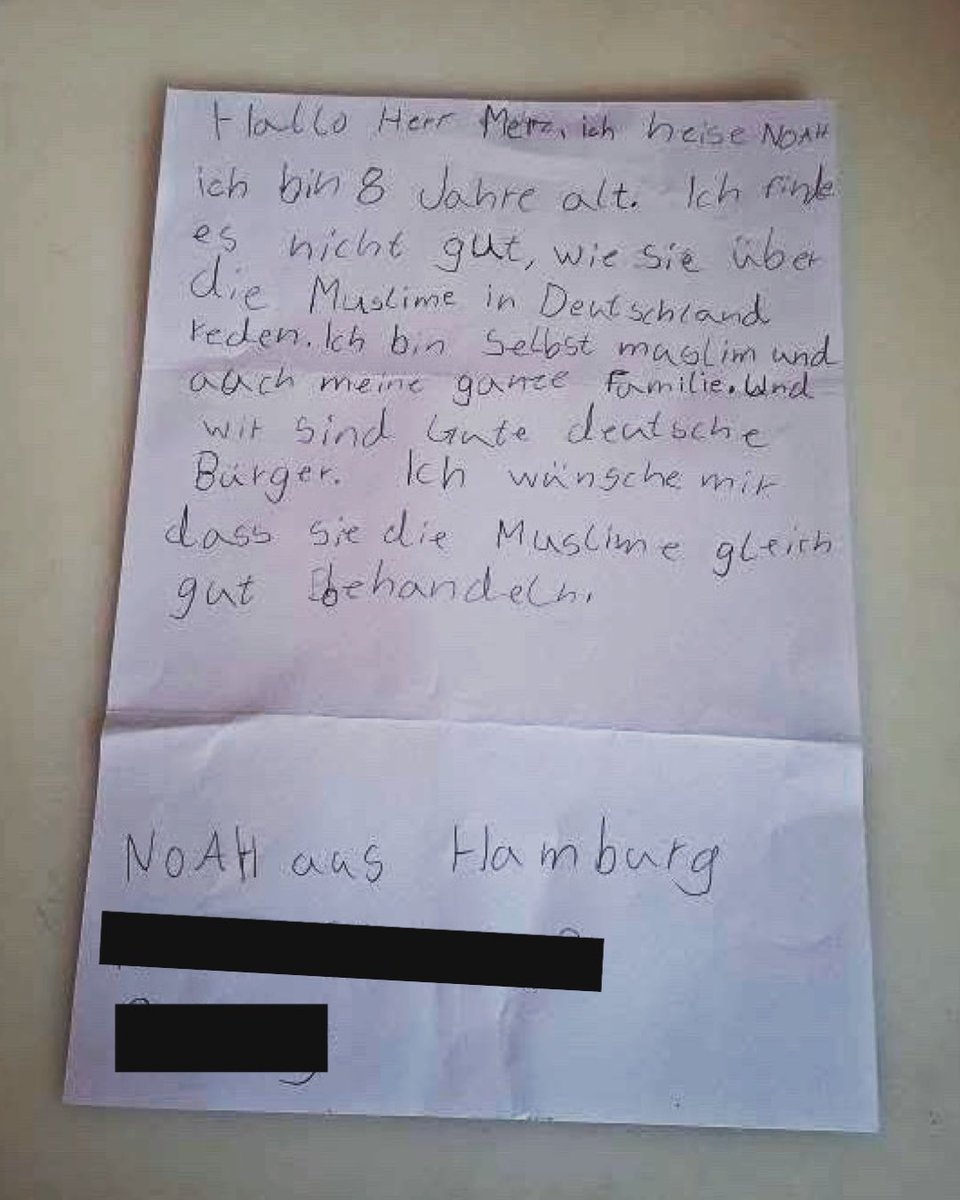 Hallo Herr Merz, ich heise NOAH
ich bin 8 Jahre alt. Ich finde
es nicht gut, wie sie über
die Muslime in Deutschland
reden. Ich bin selbst muslim und
auch meine ganze Familie. Und
wir sind Gute deutsche
Bürger. Ich wünsche mir
dass sie die Muslime gleich
gut behandeln.
NOAH aus Hamburg